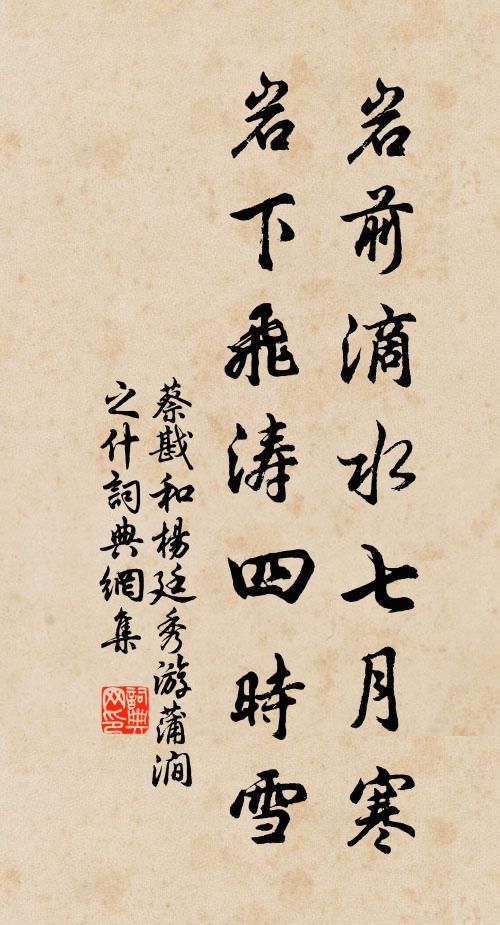 岩前滴水七月寒
岩下飛涛四時雪
蔡戡和楊廷秀游蒲澗
之什詞典網集
詞典網印